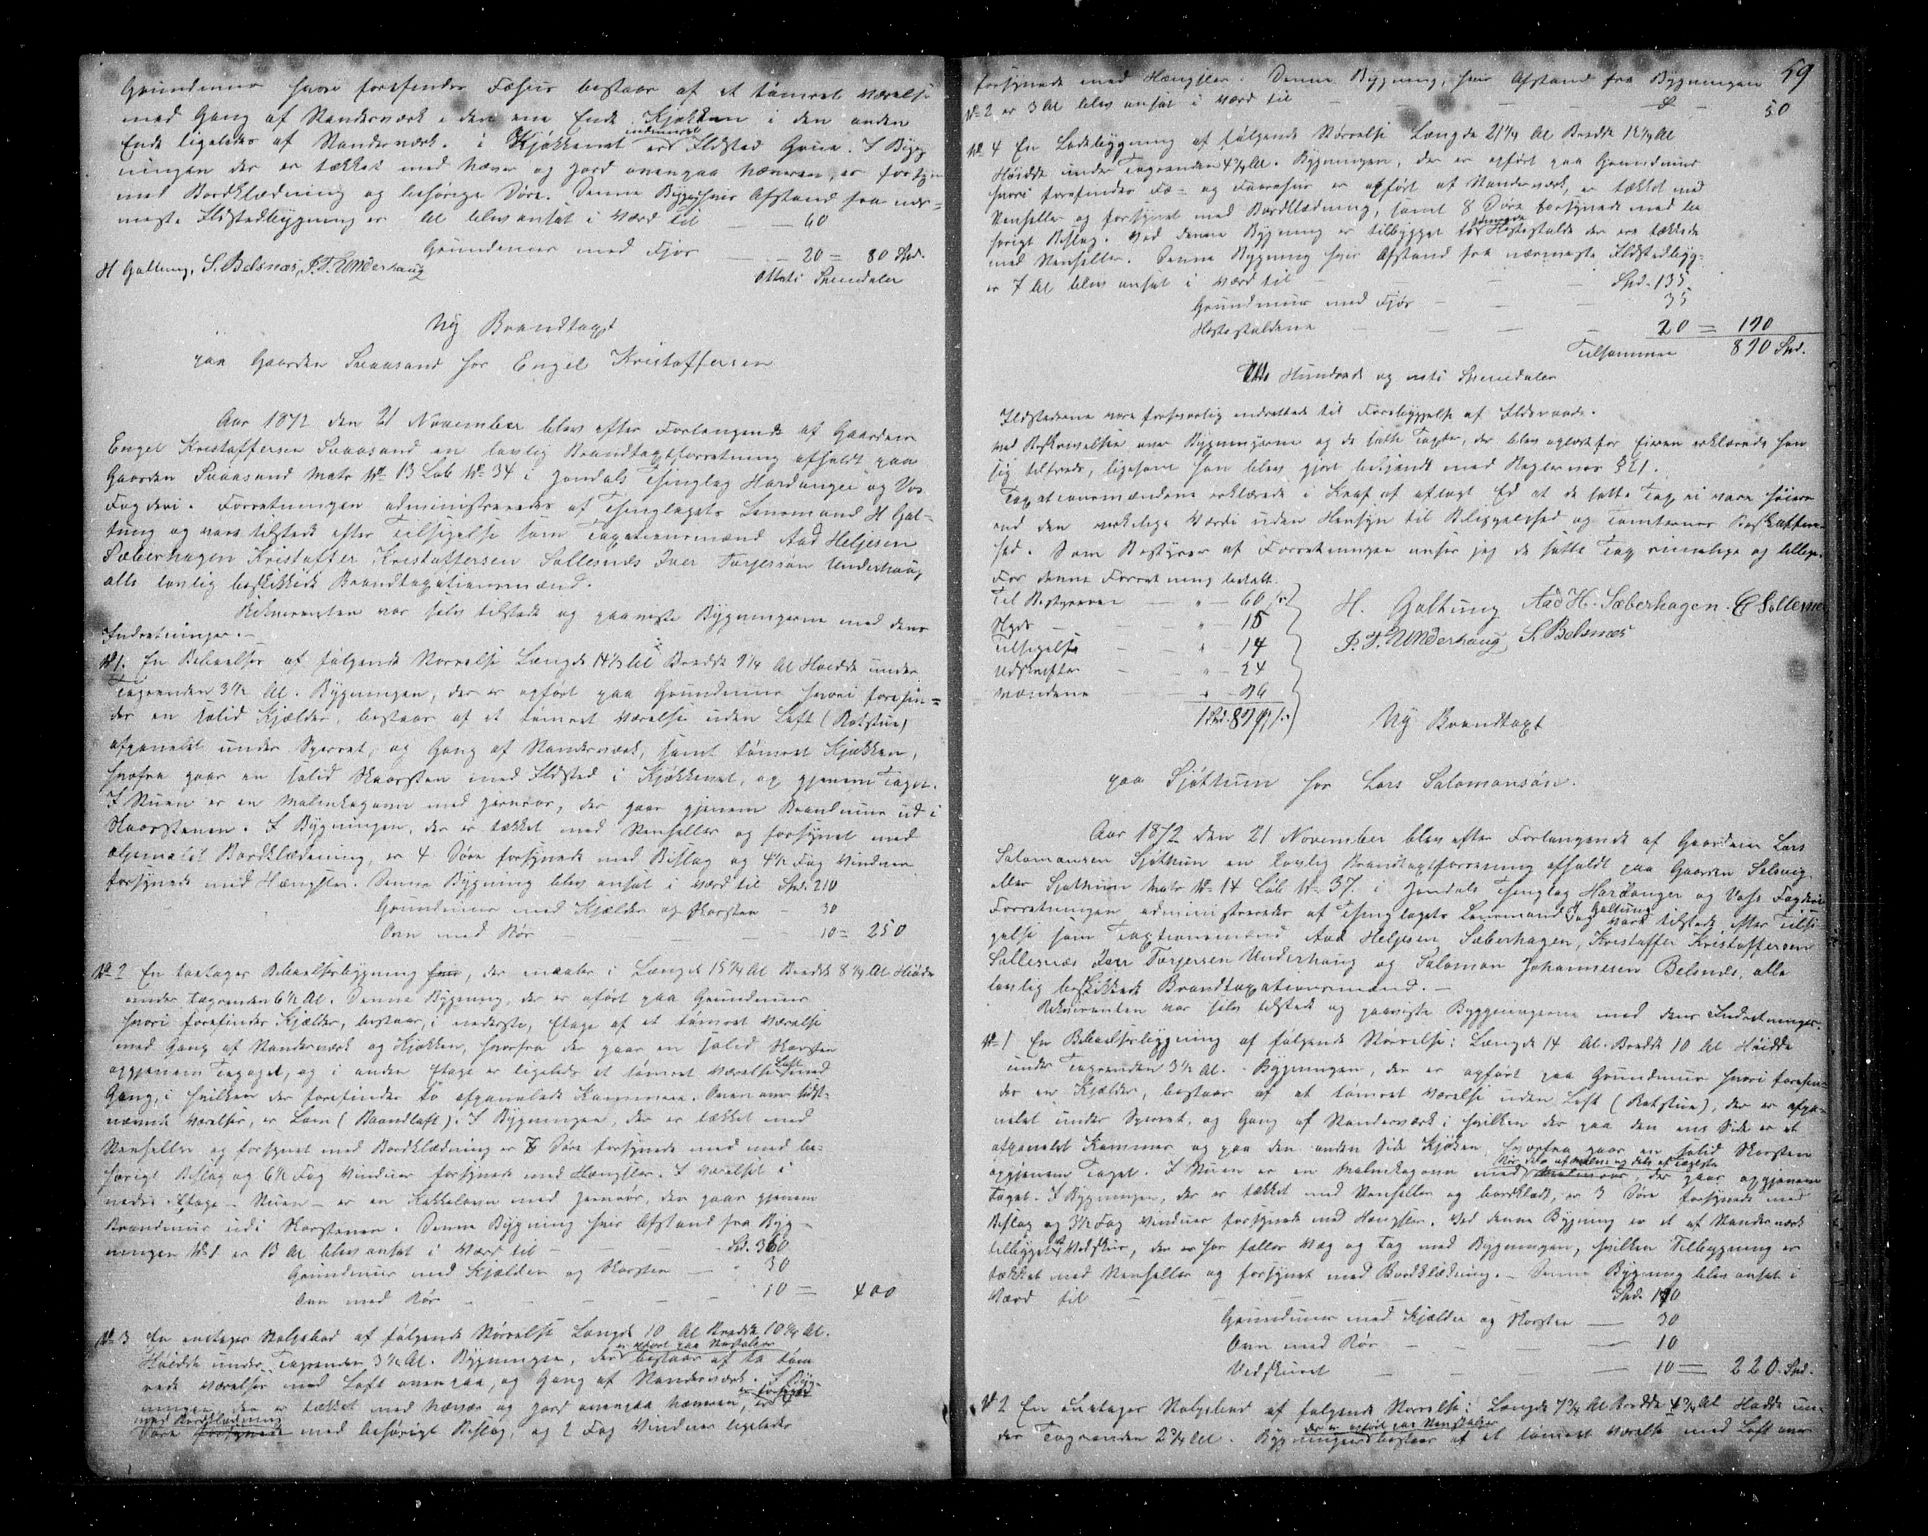 Grundmuur hvori forefindes Fæhuus bestaar af et tømret Værelse
med Gang af Standerværk i den ene Ende Kjøkken i den anden
Ende ligeledes af Standerværk. i Kjøkkenet er indmuret Ildsted Grue. I Byg-
ningen der er tækket med Næver og Jord ovenpaa Næveren, er forsyn
med Bordklædning og behørige Døre. Denne Bygn: hvis Afstand fra nær-
meste Ildstedbygning er Al blev ansat i Værd til — — 60
Grundmuur med Fjøs — — 20 = 80 Spd.
H Galtung, S. Belsnæs, J. T. Underhaug Otteti Speciedaler
Ny Brandtaxt
paa Gaarden Svaasand hos Engel Kristoffersen
Aar 1872 den 21 November blev efter Forlangende af Gaardeier
Engel Kristoffersen Svaasand en lovlig Brandtaxtforretning afholdt paa
Gaarden Svaasand Matr No 13 Løb No 34 i Jondals Thinglag Hardanger og Vos
Fogderi. Forretningen administreredes af Thinglagets Lensmand H Gal-
tung og vare tilstede efter Tilsigelse som Taxationsmænd Aad Heljesen
Sæberhagen Kristoffer Kristoffersen Sollesnæs Iver Torjersen Underhaug
alle lovlig beskikkede Brandtaxationsmænd.
Rekvirenten var selv tilstede og paaviste Bygningerne med dens
Indretninger.—
No 1. En Beboelses af følgende Størrelse Længde 14½ Al Bredde 9¼ Al Høide under
Tagrenden 3½ Al. Bygningen, der er opført paa Grundmuur hvori forefin-
des en solid Kjælder, bestaar af et tømret Værelse uden Loft (Røkstue)
afpanelet under Sperret, og Gang af Standerværk, samt tømret Kjøkken,
hvofra gaar en solid Skorsten med Ildsted i Kjøkkenet, op gjennem Taget.
I Stuen er en Malmkagovn med Jernrør, der gaar gjennem Brandmuur ud i
Skorstenen. I Bygningen, der er tækket med Stenheller og forsynet med
oljemalet Bordklædning, er 4 Døre forsynede med Beslag og 4½ Fag Vinduer
forsynede med Hængsler. Denne Bygning blev ansat i Værd til Spd. 210
Grundmuur med Kjælder og Skorsten — 30
Ovn med Rør — — — 10 = 250
No 2 En toetages Beboelsesbygning, der maaler i Længde 15¾ Al Bredde 8¾ Al Høide
under Tagrenden 6½ Al. Denne Bygning, der er opført paa Grundmuur
hvori forefindes Kjælder, bestaar, i nederste, Etage af et tømret Værelse
med Gang af Standerværk og Kjøkken, hvorfra der gaar en solid Skorsten
opgjennem Taget, og i anden Etage er ligeledes et tømret Værelse Loft med
Gang, i hvilken der forefindes to afpanelede Kammere. Ovenover sidst-
nævnte Værelse, er Lem (Raandloft). I Bygningen, der er tækket med
Stenheller og forsynet med Bordklædning er 8 Døre forsynede med med be-
hørigt Beslag og 6½ Fag Vinduer forsynede med Hængsler. I Værelset i
nedre Etage - Stuen - er en Kakkelovn med Jernrør, der gaar gjennem
Brandmuur ud i Skorstenen. Denne Bygning hvis Afstand fra Byg-
ningen No 1 er 13 Al blev ansat i Værd til — Spd. 360
Grundmuur med Kjælder og Skorsten — 30
Ovn med Rør — — 10 = 400
No 3 En enetages Stolpebod af følgende Størrelse Længde 10 Al Bredde 10¾ Al.
Høide under Tagrenden 3½ Al. Bygningen, der er opført paa Stenstolper bestaar af to tøm
rede Værelser med Loft ovenpaa, og Gang af Standerværk. I Byg-
ningen, der er tækket med Næver og Jord ovenpaa Næveren, er forsynet
med Bordklædning er 4
Døre forsynede med behørigt Beslag, og 2 Fag Vinduer ligeledes
59
forsynede med Hængsler. Denne Bygning, hvis Afstand fra Bygningen
No 2 er 3 Al blev ansat i Værd til — — — 50
No 4 En Ladebygning af følgende Størrelse Længde 21¼ Al Bredde 12¼ Al
Høide under Tagrenden 4¼ Al. Bygningen, der er opført paa Grundmuur
hvori forefindes Fæ- og Faarehuus er opført af Standerværk, er tækket med
Stenheller og forsynet med Bordklædning, samt 8 Døre forsynede med be
hørigt Beslag. Ved denne Bygning er tilbygget to tømrede Hestestalde der ere tækkede
med Stenheller. Denne Bygning hvis Afstand fra nærmeste Ildstedbyg:
er 7 Al blev ansat i Værd til — — Spd. 135.
Grundmuur med Fjøs — — — 35
Hestestaldene — — — 20 = 190
Tilsammen 890 Spd.
Otte Hundrede og nitti Speciedaler
Ildstederne vare forsvarlig indrettede til Forebyggelse af Ildsvaade.
Ved Beskrivelsen over Bygningerne og de satte Taxter, der blev oplæst for Eieren erklærede han
sig tilfreds, ligesom han blev gjort bekjendt med Reglernes § 21.
Taxationsmændene erklærede i Kraf af aflagt Ed at de satte Tax ei vare høiere
end den virkelige Værdi uden Hensyn til Beliggenhed og Tomternes Beskaffen-
hed. Som Bestyrer af Forretningen anser jeg de satte Tax rimelige og billige.
For denne Forretning betalt.
Til Bestyreren — " - 60 ß
Skyds — " - 15
Tilsigelse — " - 14
Udskrifter — " - 24
Mændene — " - 96
1 Spd. 89 ß
H. Galtung Aad H. Sæberhagen. C Sollesnes
J. T. Underhaug S. Belsnæs
Ny Brandtaxt
paa Sjøthun hos Lars Salomonsøn.
Aar 1872 den 21 November blev efter Forlangende af Gaardeier Lars
Salomonsen Sjøthun en lovlig Brandtaxtforretning afholdt paa Gaarden Selsvig
eller Sjøthun Matr No 14 Løb No 37. i Jondals Thinglag Hardanger og Vos Fogderi
Forretningen administreredes af Thinglagets Lensmand H. Galtung og vare tilstede efter Tilsi-
gelse som Taxtionsmænd Aad Heljesen Sæberhagen, Kristoffer Kristoffersen
Sollesnæs Iver Torjersen Underhaug og Salomon Johannesen Belsnæs, alle
lovlig beskikkede Brandtaxationsmænd.—
Rekvirenten var selv tilstede og paaviste Byggningerne med dens Indretninger.
No 1 En Beboelsesbygning af følgende Størrelse: Længde 14 Al. Bredde 10 Al Høide
under Tagrenden 3½ Al. - Bygningen, der er opført paa Grundmuur hvori forefin-
des en Kjælder, bestaar af et tømret Værelse uden Loft (Røkstue), der er afpa-
nelet under Sperret, og Gang af Standerværk i hvilken der paa den ene Side er et
afpanelet Kammer og paa den anden Side Kjøken, hvorfra gaar en solid Skorsten
opgjennem Taget. I Stuen er en Malmkagovn med Rør, dels af Malm og dels af Tagsten, der gaar opgjennem
Taget. I Bygningen, der er tækket med Stenheller og bordklædt, er 3 Døre forsynede med
Beslag og 3½ Fag Vinduer forsynede med Hængsler. Ved denne Bygning er et af Standerværk
tilbygget Vedskur, der er har fælles Væg og Tag med Bygningen, hvilken Tilbygning er
tækket med Stenheller og forsynet med Bordklædning. - Denne Bygning blev ansat i
Værd til — — Spd. 170
Grundmuur med Kjælder og Skorsten — 30
Ovn med Rør — — — 10
Vedskuret — — 10 = 220 Spd.
No 2 En Enetages Stolpebod af følgende Størrelse: Længde 7¾ Al Bredde 4¾ Al Høide un-
der Tagrenden 2¾ Al. Bygningen der er opført paa Stenstolper bestaar af et tømret Værelse med Loft over